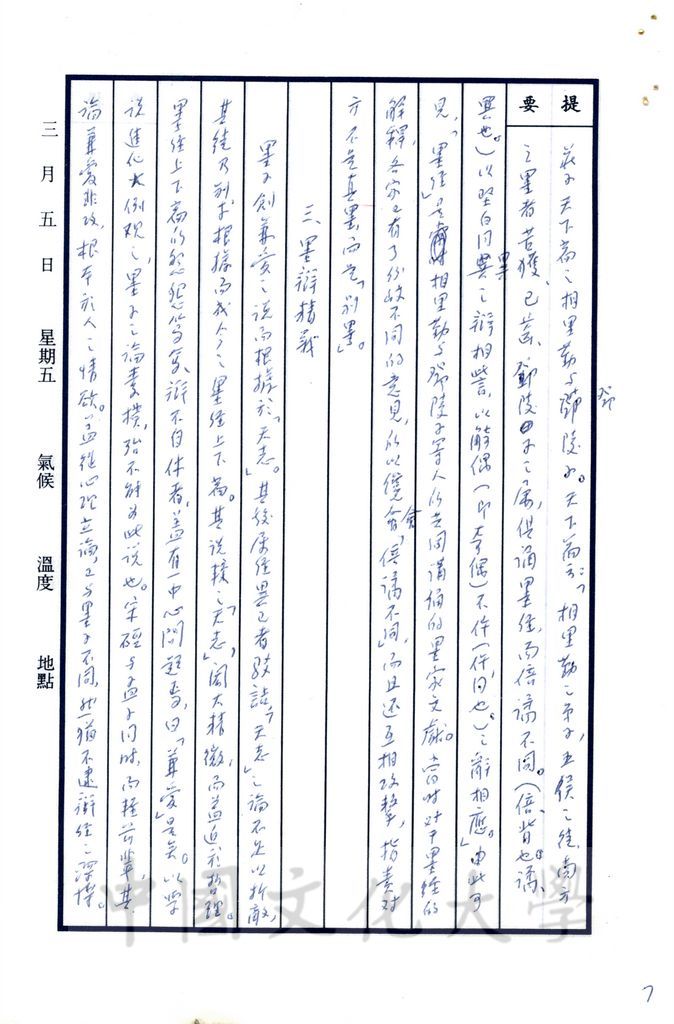 提要
莊子天下篇之相里勤与鄧陵子。天下篇云：「相里勤之弟子，五侯之徒，南方
鄧
之墨者苦獲、已齒、鄧陵子之屬，俱誦墨經，而倍譎不同。（倍、背也。譎、
異也。）以堅白同異之辯相訾，以觭偶（即奇偶）不仵（仵，同也。）之辭相應。」由此可
見，「墨經」是相里勤与鄧陵子等人所共同誦習的墨家文獻。當時對于墨經的
解釋，各家已有了分歧不同的意見，所以儘會「倍譎不同」，而且还互相攻擊，指責对
方不是真墨，而是「別墨」。
三、墨辯精義
墨子創兼愛之說而根據於「天志」。其後展經異己者駁詰，「天志」之論不足以折敵，
其徒乃別求根據而成今之墨經上下篇。其說較之「天志」，閎大精微，而益近於哲理。
墨經上下篇的
辯不自休者，蓋有一中心問題焉，曰「兼愛」是矣。以学
說進化大例観之，墨子之論素樸，殆不能為此說也。宋硜与孟子同時，而種芸輩，其
論兼愛非攻，根本於人之情欲。蓋從心理立論，已与墨子不同，然猶不逮辯經之深博。
三月五日 星期五 氣候 溫度 地點
中國文化大學
7